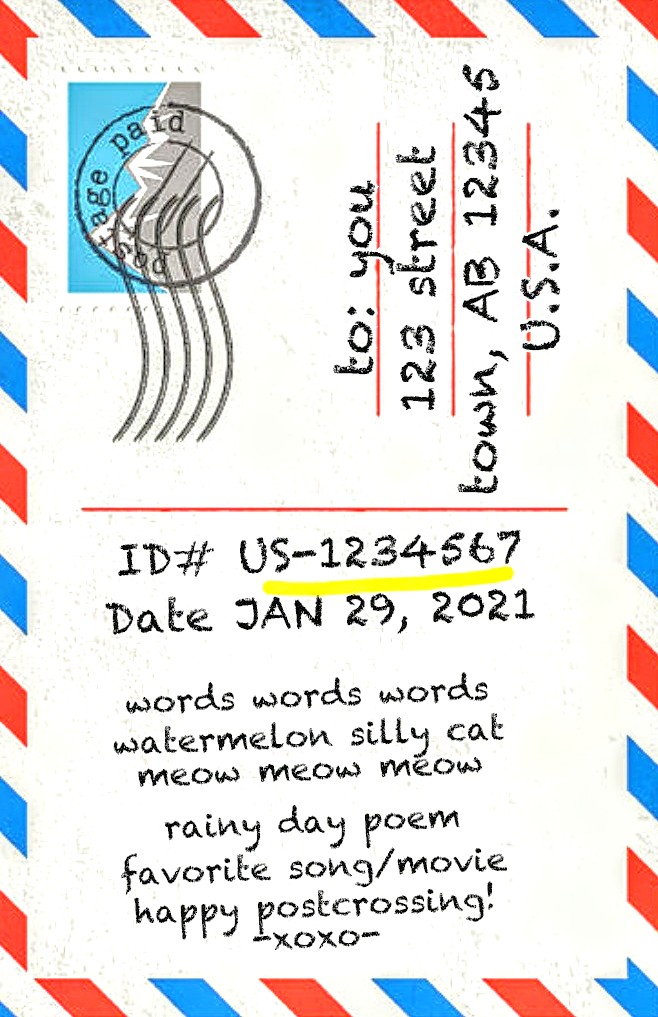 postage paid
to: you
123 street
town, AB 12345
U.S.A.
ID# US-1234567
Date JAN 29, 2021
words words words
watermelon silly cat
meow meow meow
rainy day poem
favorite song/movie
happy postcrossing!
-xoxo-